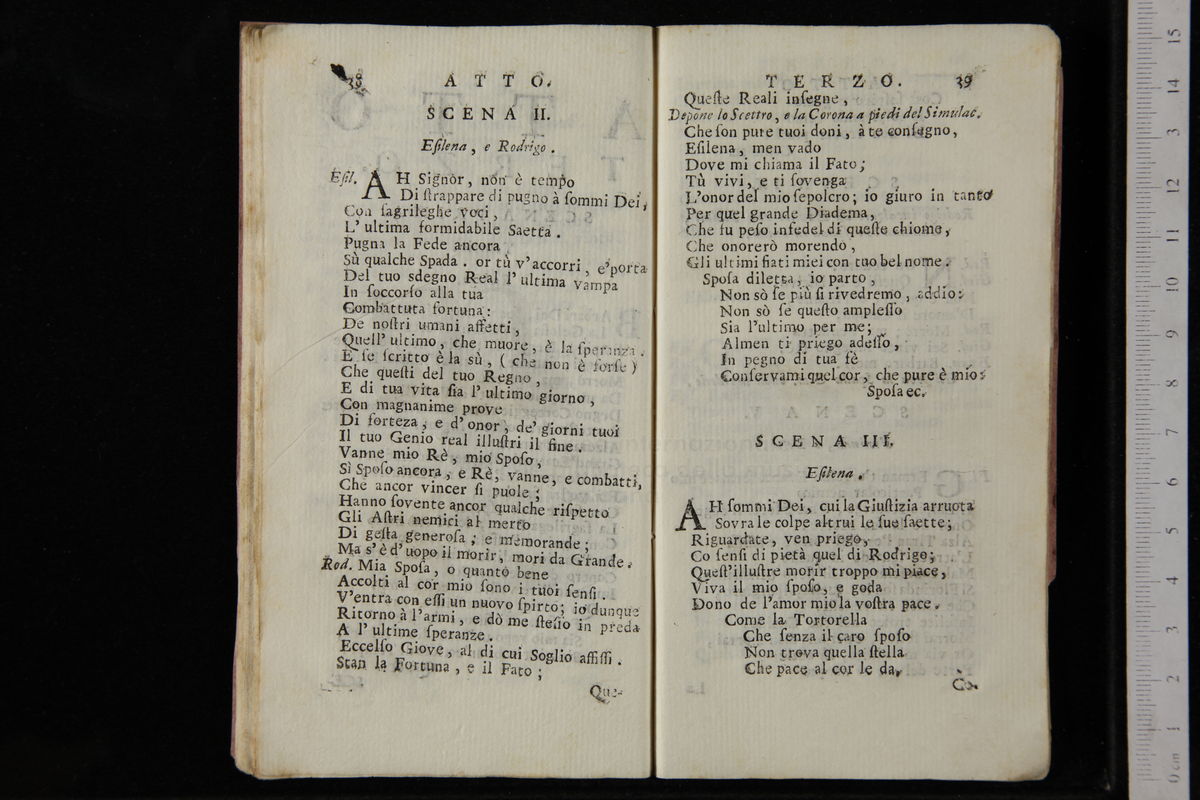 38 ATTO.
SCENA II.
Eſilena, e Rodrigo.
Eſil. AH Signor, non è tempo
Di ſtrappare di pugno à ſommi Dei,
Con ſagrileghe voci,
L'ultima formidabile Saetta.
Pugna la Fede ancora
Sù qualche Spada. or tù v'accorri, e porta
Del tuo sdegno Real l'ultima vampa
In ſoccorſo alla tua
Combattuta fortuna:
De noſtri umani affetti,
Quell'ultimo, che muore, è la ſperanza.
E ſe ſcritto è la sù, (che non è forſe)
Che queſti del tuo Regno,
E di tua vita ſia l'ultimo giorno,
Con magnanime prove
Di forteza, e d'onor, de' giorni tuoi
Il tuo Genio real illuſtri il fine.
Vanne mio Rè, mio Spoſo,
Sì Spoſo ancora, e Rè, vanne, e combatti,
Che ancor vincer ſi puole;
Hanno ſovente ancor qualche riſpetto
Gli Aſtri nemici al merto
Di geſta generoſa, e memorande;
Ma s'è d'uopo il morir, mori da Grande.
Rod. Mia Spoſa, o quanto bene
Accolti al cor mio ſono i tuoi ſenſi.
V'entra con eſſi un nuovo ſpirto; io dunque
Ritorno à l'armi, e dò me ſteſſo in preda
A l'ultime ſperanze.
Eccelſo Giove, al di cui Soglio aſſiſſi.
Stan la Fortuna, e il Fato;
Que-
TERZO. 39
Queſte Reali inſegne,
Depone lo Scettro, e la Corona a piedi del Simulac.
Che ſon pure tuoi doni, à te conſagno,
Eſilena, men vado
Dove mi chiama il Fato;
Tù vivi, e ti ſovenga
L'onor del mio ſepolcro; io giuro in tanto
Per quel grande Diadema,
Che fu peſo infedel di queſte chiome,
Che onorerò morendo,
Gli ultimi fiati miei con tuo bel nome.
Spoſa diletta, io parto,
Non sò ſe più ſi rivedremo, addio:
Non sò ſe queſto ampleſſo
Sia l'ultimo per me;
Almen ti priego adeſſo,
In pegno di tua fè
Conſervami quel cor, che pure è mio:
Spoſa ec.
SCENA III.
Eſilena.
AH ſommi Dei, cui la Giuſtizia arruota
Sovra le colpe altrui le ſue ſaette;
Riguardate, ven priego,
Co ſenſi di pietà quel di Rodrigo;
Queſt'illuſtre morir troppo mi piace,
Viva il mio ſpoſo, e goda
Dono de l'amor mio la voſtra pace.
Come la Tortorella
Che ſenza il caro ſpoſo
Non trova quella ſtella
Che pace al cor le da,
Co.